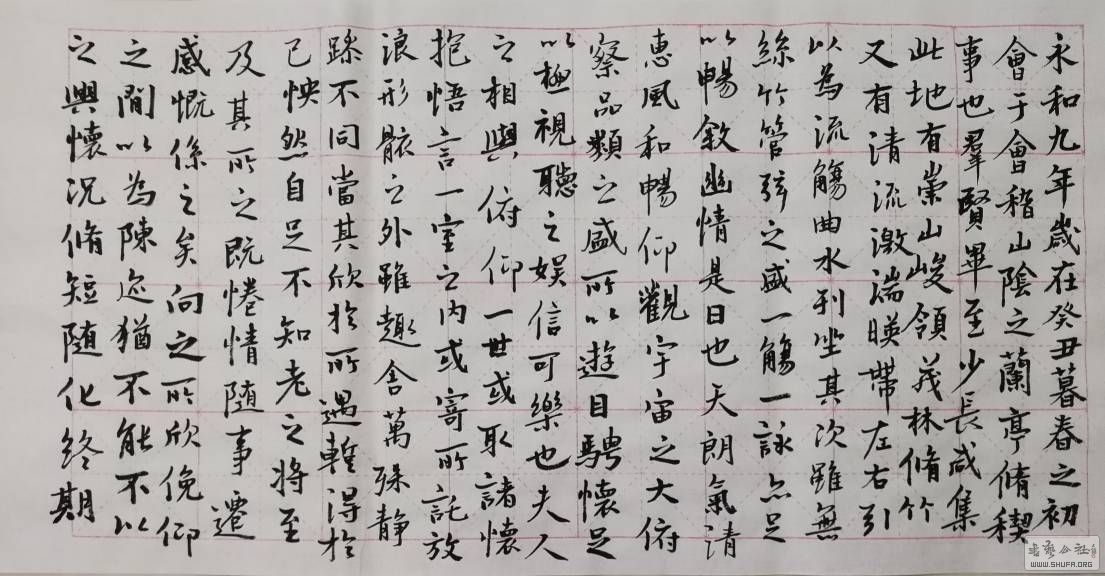 永和九年歲在癸丑暮春之初
會于會稽山陰之蘭亭脩稧
事也羣賢畢至少長咸集
此地有崇山峻領茂林脩竹
又有清流激湍暎帶左右引
以為流觴曲水列坐其次雖無
絲竹管弦之盛一觴一詠亦足
以暢敘幽情是日也天朗氣清
惠風和暢仰觀宇宙之大俯
察品類之盛所以遊目騁懷足
以極視聽之娛信可樂也夫人
之相與俯仰一世或取諸懷
抱悟言一室之內或寄所託放
浪形骸之外雖趣舍萬殊静
躁不同當其欣於所遇蹔得於
己怏然自足不知老之將至
及其所之既惓情隨事遷
感慨係之矣向之所欣俛仰
之閒以為陳迹猶不能不以
之興懷況脩短隨化終期
書藝公社
WWW.SHUFA.ORG